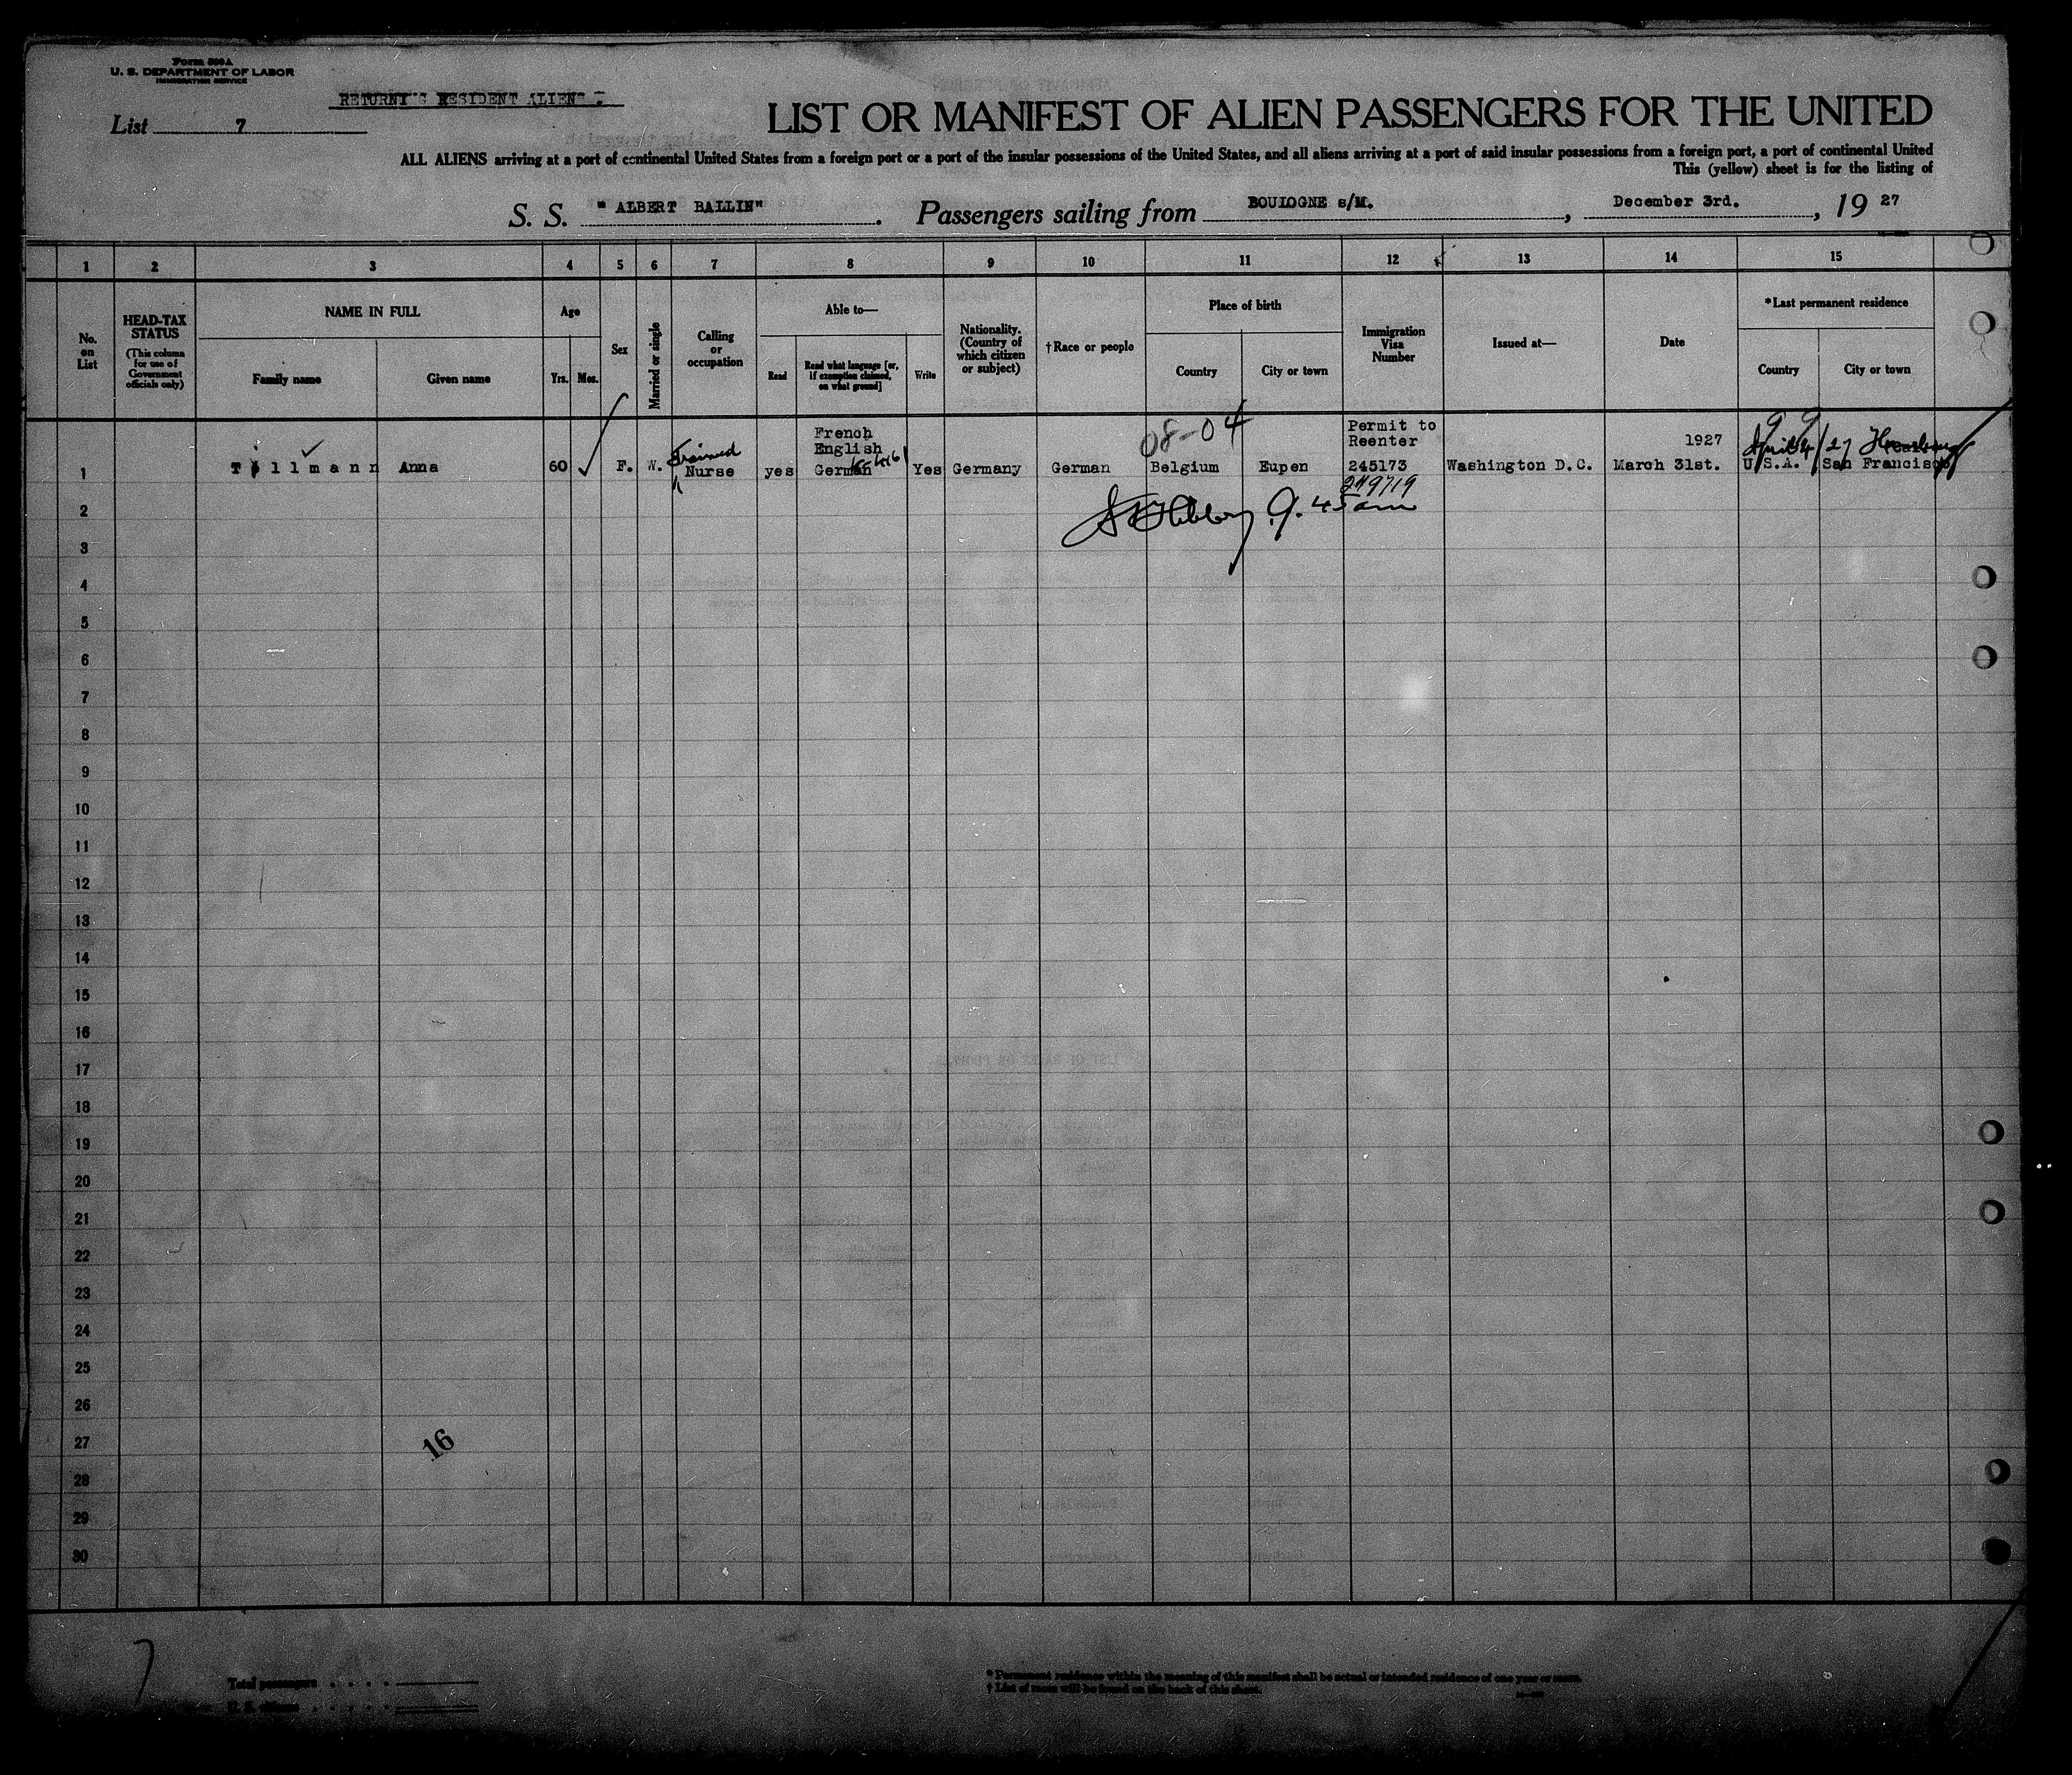 Form 500A
U. S. DEPARTMENT OF LABOR
IMMIGRATION SERVICE
RETURNI G RESIDENT ALIEN
List 7
LIST OR MANIFEST OF ALIEN PASSENGERS FOR THE UNITED
ALL ALIENS arriving at a port of continental United States from a foreign port or a port of the insular possessions of the United States, and all aliens arriving at a port of said insular possessions from a foreign port, a port of continental United
This (yellow) sheet is for the listing of
S. S. "ALBERT BALLIN". Passengers sailing from BOULOGNE s/M., December 3rd., 19 27
1 2 3 4 5 6 7 8 9 10 11 12 13 14 15
No. on List
HEAD-TAX STATUS (This column for use of Government officials only)
NAME IN FULL
Family name Given name
Age
Yrs. Mos.
Sex
Married or single
Calling or occupation
Able to—
Read
Read what language [or, if exemption claimed, on what ground]
Write
Nationality. (Country of which citizen or subject)
†Race or people
Place of birth
Country City or town
Immigration Visa Number
Issued at—
Date
*Last permanent residence
Country City or town
08-04
French Permit to
English Reenter 1927
Trained
1 Tillmann Anna 60 F. W. Nurse yes German Yes Germany German Belgium Eupen 245173 Washington D.C. March 31st. U.S.A. San Francisco
249719
2 9.45 am
3
4
5
6
7
8
9
10
11
12
13
14
15
16
17
18
19
20
21
22
23
24
25
26
27
16
28
29
30
7
Total passengers
U. S. citizens
* Permanent residence within the meaning of this manifest shall be actual or intended residence of one year or more.
† List of races will be found on the back of this sheet.